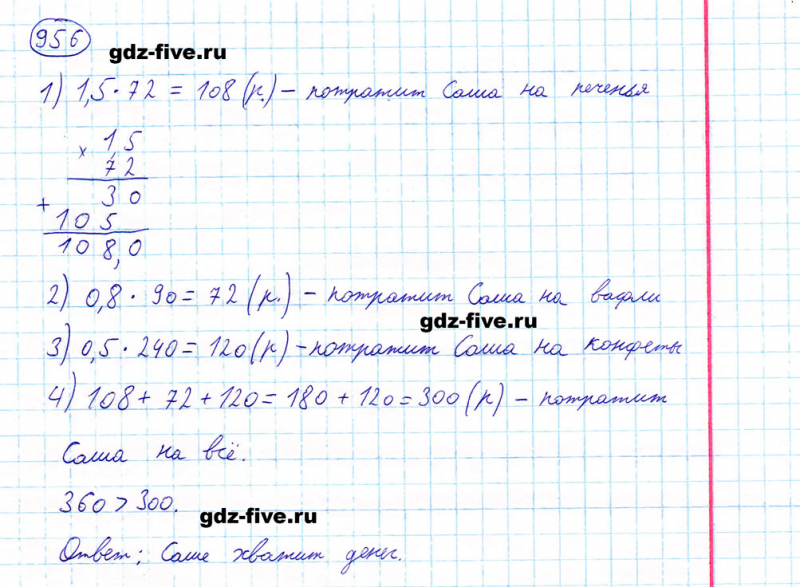 956
gdz-five.ru
1) 1,5 · 72 = 108 (р.) – потратит Саша на печенья
× 1,5
72
30
+ 105
108,0
2) 0,8 · 90 = 72 (р.) – потратит Саша на вафли
gdz-five.ru
3) 0,5 · 240 = 120 (р) – потратит Саша на конфеты
4) 108 + 72 + 120 = 180 + 120 = 300 (р) – потратит
Саша на всё.
360 > 300.
gdz-five.ru
Ответ: Саше хватит денег.